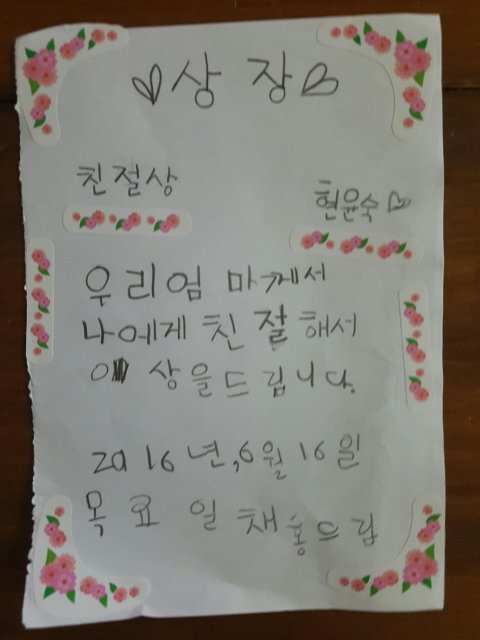 상장
친절상
현윤숙
우리엄마께서
나에게 친절해서
이 상을드립니다.
2016년,6월16일
목요일 채홍드림